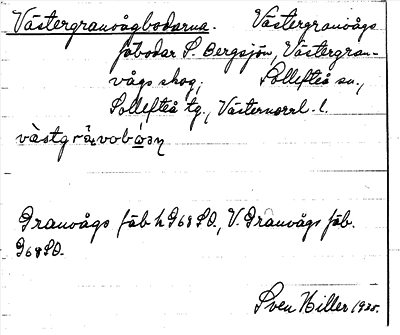 Västergranvågbodarna. Västergranvågs
fäbodar S. Bergsjön, Västergran-
vågs skog, Sollefteå sn.,
Sollefteå tg., Västernorrl. l.
Granvågs fäb h G68SO., V. Granvågs fäb.
G68SO.
Sven Hiller 1935.